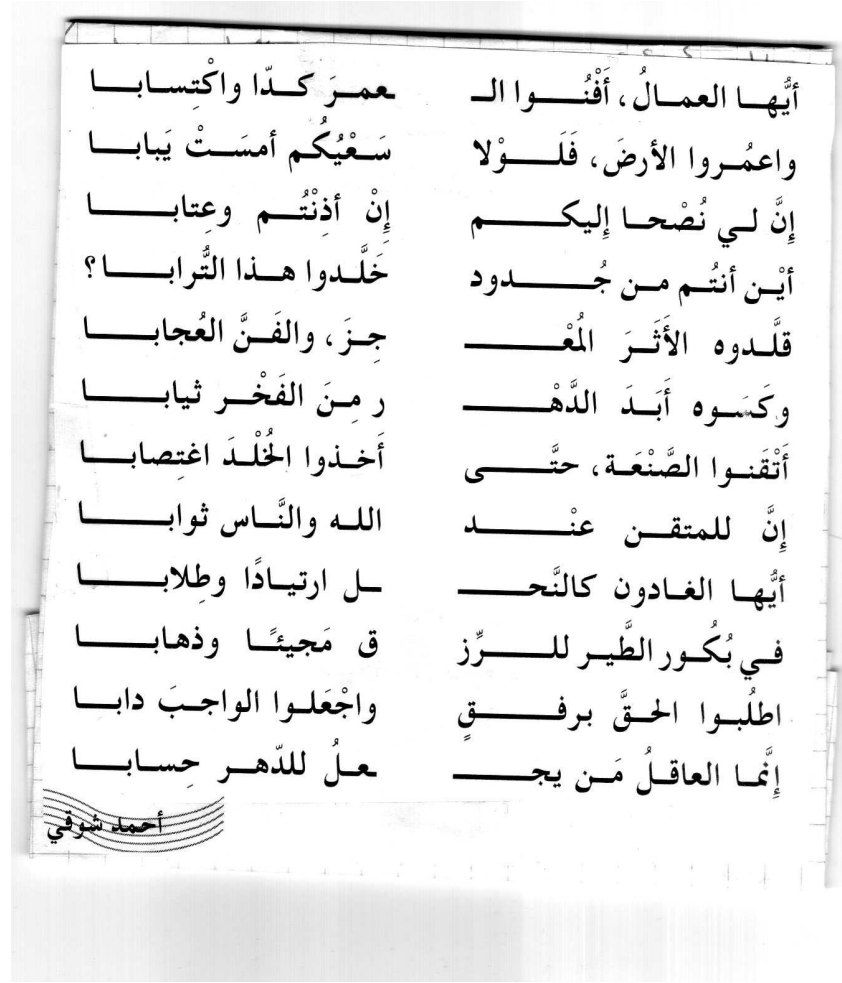 أيُّهـا العمـالُ، أَفْنُـوا الـ ـعمـرَ كـدّا واكْتِسـابـا
واعمُـروا الأرضَ، فَلَـوْلا سَـعْيُكُم أمسَـتْ يَبابـا
إِنَّ لـي نُصْحـا إليكـم إِنْ أذِنْتُـم وعِتابـا
أيْـن أنتُـم مـن جُـدود خَلَّـدوا هـذا التُّرابـا؟
قلَّـدوه الأَثَـرَ المُعْـ جِـزَ، والفَـنَّ العُجابـا
وكَسَـوه أَبَـدَ الدَّهْـ ر مِـنَ الفَخْـر ثيابـا
أَتْقَنـوا الصَّنْعَـة، حتَّـى أَخـذوا الخُلْـدَ اغتِصابـا
إِنَّ للمتقـن عنْـد اللـه والنَّـاس ثوابـا
أيُّهـا الغـادون كالنَّحـ ـل ارتيـادًا وطِلابـا
فـي بُكُـور الطَّيـر للـرِّز ق مَجيئًـا وذهابـا
اطلُبـوا الحـقَّ برفـقٍ واجْعَلـوا الواجـبَ دابـا
إِنَّمـا العاقـلُ مَـن يجـ ـعـلُ للدّهـر حِسـابـا
أحمد شوقي